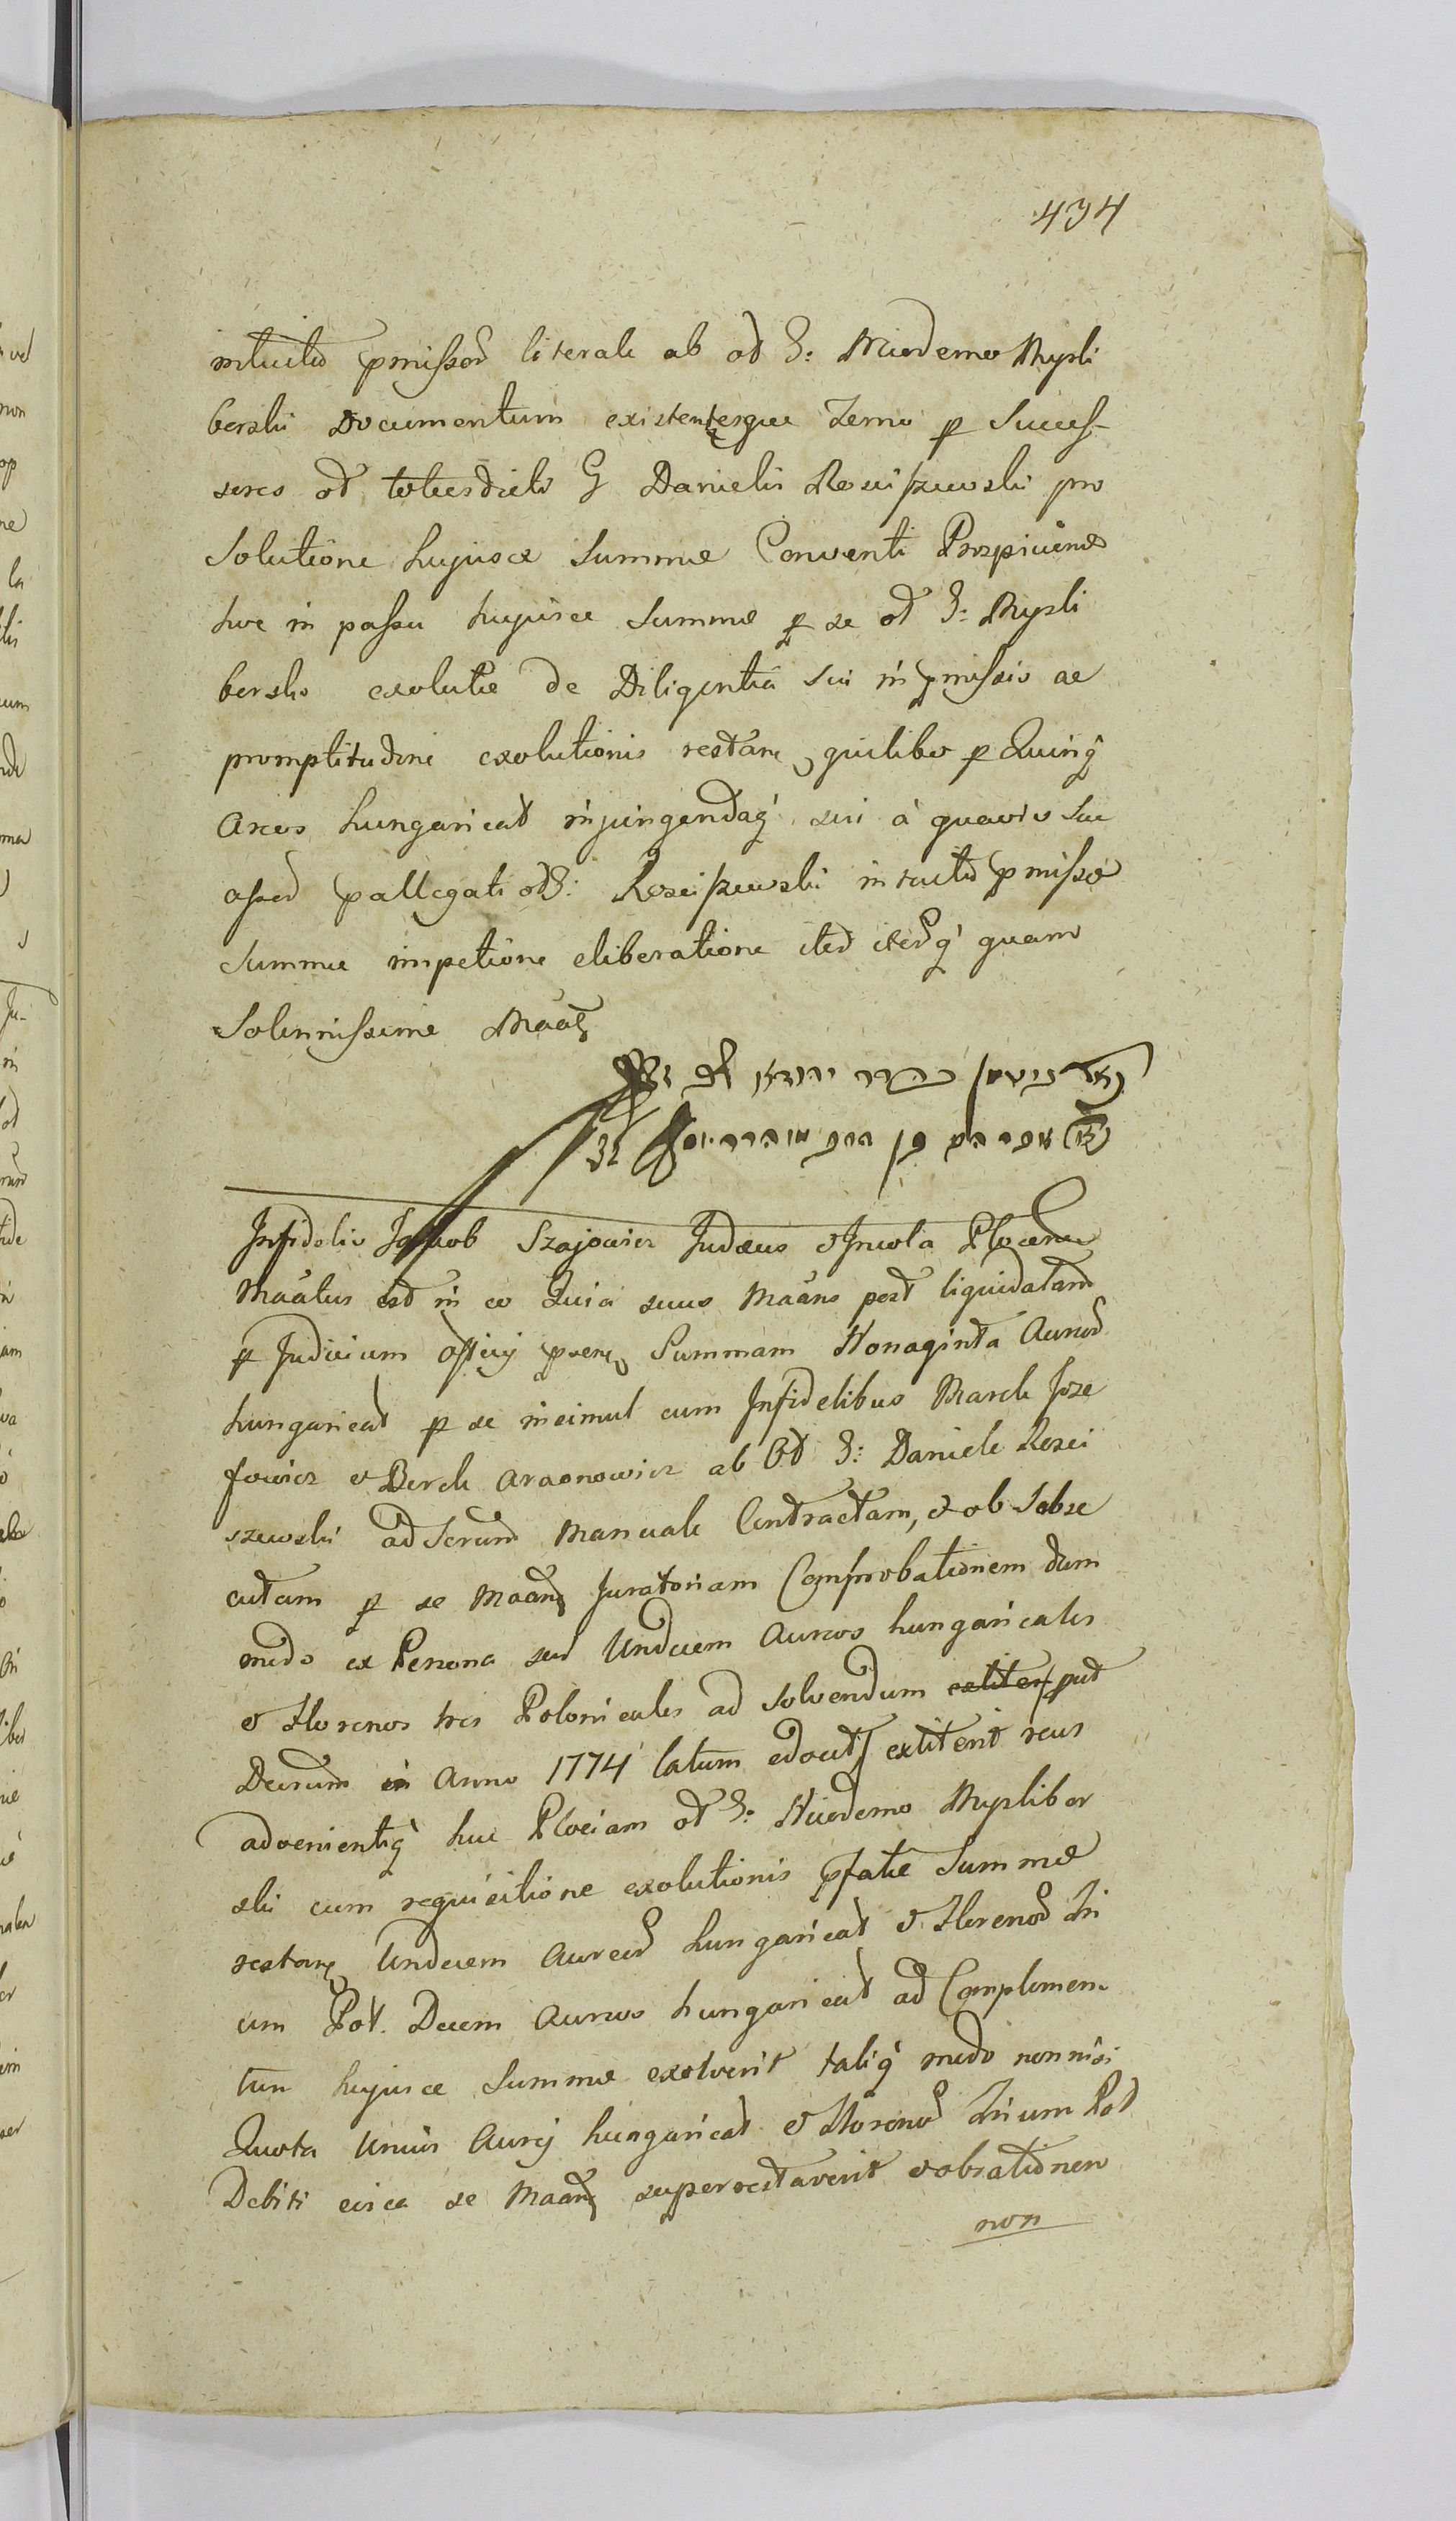 434
intuitu pmissor literale ab od G: Nicodemo Mysli
borski Documentum existentesque Termo p Succes-
sores od totiesdicti G Danielis Rosciszewski pro
Solutione hujusce Summæ Conventi Prospiciendo
huc in passu hujusce Summæ p se od G: Mysli
borsko exolutæ de Diligentia sui in pmissis ac
promptitudine exolutionis restan, quilibus p Quinq
Areos hungaricat injungendaq sui à quavis suc
assor pallegati od G: Rosciszewski intuitu pmissæ
Summæ impetione eliberatione iter iterq quam
Solennissime Maat
Infidelis Jakob Szajowicz Judæus & Incola Plocen
Maatus est in eo Quia suus Maans post liquidatam
p Judicium officij psens Summam Nonaginta Aureor
hungaricat p se insimul cum Infidelibus March Joze
fowicz & Berek Araonowicz ab Od G: Daniele Rosci
szewski ad Scrum Manuale Contractam, & ob Subse
cutam p se Maan Juratoriam Comprobationem dum
modo ex Persona sua Undecim Aureos hungaricales
& Florenos tres Polonicales ad solvendum extiter put
Decrum in Anno 1774 latum edocet extiterit reus
advenientiq huc Plociam od G: Nicodemo Myslibor
ski cum requisitione exolutionis pfatæ Summæ
restan Undecem Aureor hungaricat & Florenor Tri
um Pol. Decem Aureos hungaricat ad Complemen
tum hujusce Summæ exolverit taliq modo nonnisi
Quota Unius Aurej hungaricat & Florenor Trium Pol
Debiti circa se Maan superrestaverit & obrationem
non